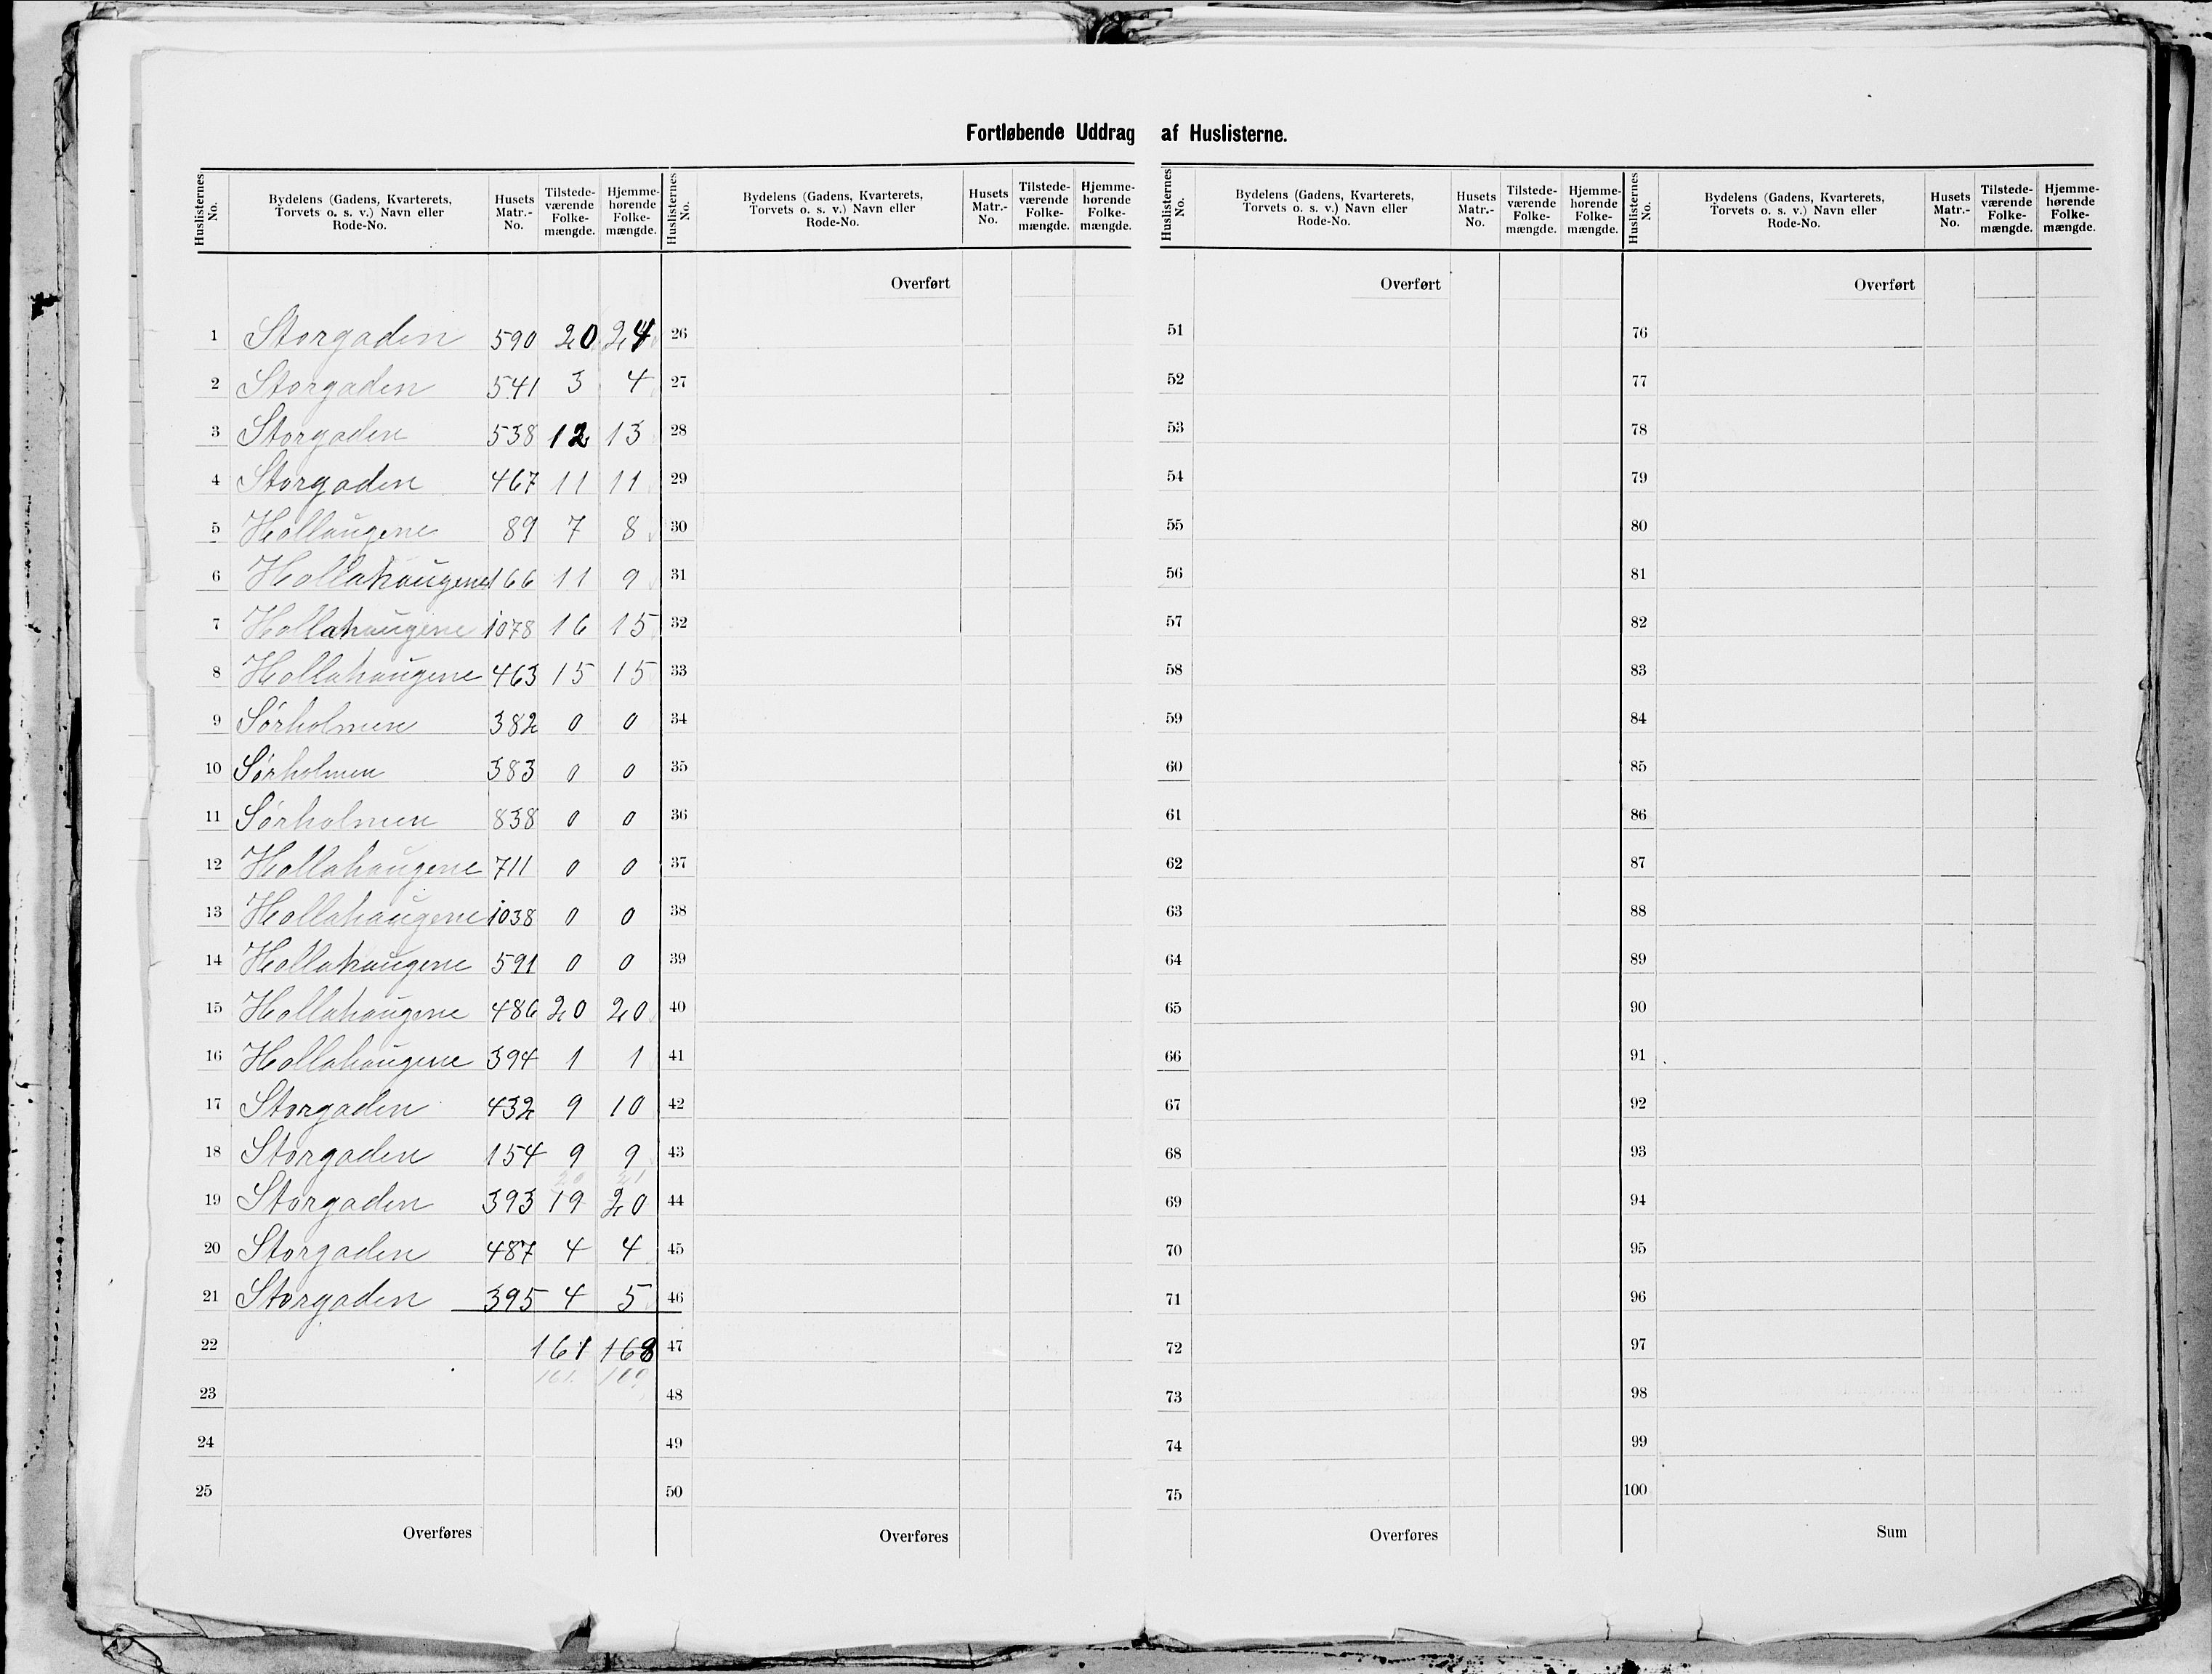 Fortløbende Uddrag af Huslisterne.
Huslisternes No. Bydelens (Gadens, Kvarterets, Torvets o. s. v.) Navn eller Rode-No. Husets Matr.-No. Tilstedeværende Folkemængde. Hjemmehørende Folkemængde.
Huslisternes No. Bydelens (Gadens, Kvarterets, Torvets o. s. v.) Navn eller Rode-No. Husets Matr.-No. Tilstedeværende Folkemængde. Hjemmehørende Folkemængde.
Huslisternes No. Bydelens (Gadens, Kvarterets, Torvets o. s. v.) Navn eller Rode-No. Husets Matr.-No. Tilstedeværende Folkemængde. Hjemmehørende Folkemængde.
Huslisternes No. Bydelens (Gadens, Kvarterets, Torvets o. s. v.) Navn eller Rode-No. Husets Matr.-No. Tilstedeværende Folkemængde. Hjemmehørende Folkemængde.
Overført Overført Overført
1 Storgaden 590 20 24 26 51 76
2 Storgaden 541 3 4 27 52 77
3 Storgaden 538 12 13 28 53 78
4 Storgaden 467 11 11 29 54 79
5 Hollaugene 89 7 8 30 55 80
6 Hollahaugene 166 11 9 31 56 81
7 Hollahaugene 1078 16 15 32 57 82
8 Hollahaugene 463 15 15 33 58 83
9 Sørholmen 382 0 0 34 59 84
10 Sørholmen 383 0 0 35 60 85
11 Sørholmen 838 0 0 36 61 86
12 Hollahaugene 711 0 0 37 62 87
13 Hollahaugene 1038 0 0 38 63 88
14 Hollahaugene 591 0 0 39 64 89
15 Hollahaugene 486 20 20 40 65 90
16 Hollahaugene 394 1 1 41 66 91
17 Storgaden 432 9 10 42 67 92
18 Storgaden 154 9 9 43 68 93
19 Storgaden 393 19 20 44 69 94
20 Storgaden 487 4 4 45 70 95
21 Storgaden 395 4 5 46 71 96
22 161 168 47 72 97
161.
23 48 73 98
24 49 74 99
25 50 75 100
Overføres Overføres Overføres Sum